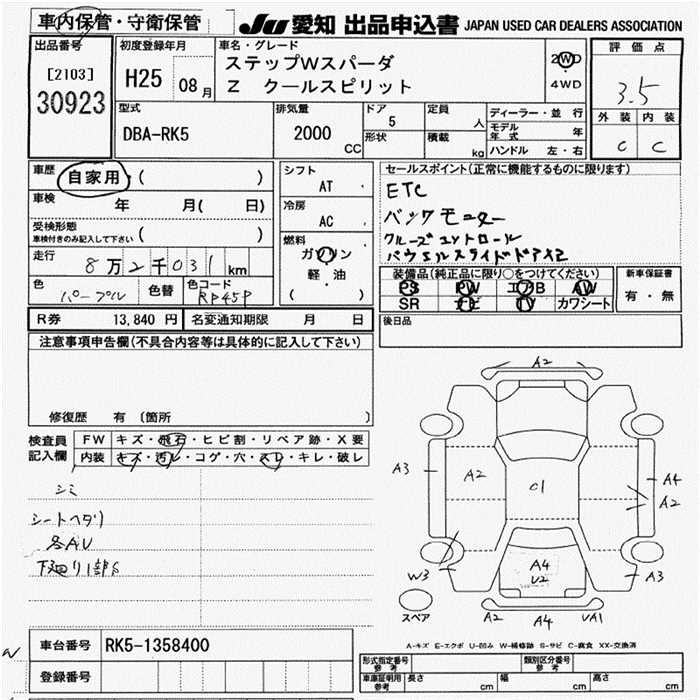 車内保管・守衛保管
JU 愛知 出品申込書 JAPAN USED CAR DEALERS ASSOCIATION
出品番号
[2103]
30923
初度登録年月
H25 08月
車名・グレード
ステップWスパーダ
Z クールスピリット
2WD
4WD
評価点
3.5
外装 内装
C C
型式
DBA-RK5
排気量
2000 CC
ドア
5
形状
定員
人
積載
kg
ディーラー・並行
モデル年式 年
ハンドル 左・右
車歴
自家用 ( )
車検 年 月( 日)
受検形態
車検付きのみ記入して下さい ( )
走行 8万2千031km
色 パープル 色替 色コード RP45P
シフト
AT
冷房
AC
燃料
ガソリン
軽・油
( )
セールスポイント(正常に機能するものに限ります)
ETC
バックモニター
クルーズコントロール
パワースライドドア×2
装備品(純正品に限り○をつけてください)
PS PW エアB AW
SR ナビ TV カワシート
新車保証書
有・無
R券 13,840 円 名変通知期限 月 日
後日品
注意事項申告欄(不具合内容等は具体的に記入して下さい)
修復歴 有 (箇所 )
検査員記入欄
FW キズ・飛石・ヒビ割・リペア跡・X要
内装 キズ・汚レ・コゲ・穴・スレ・キレ・破レ
シミ
シートヘタリ
各AU
下廻り1部S
A2
A3
A2
C1
A4
A2
W3
A4
U2
A3
スペア
A2
A4
UA1
A-キズ E-エクボ U-凹み W-補修跡 S-サビ C-腐食 XX-交換済
車台番号 RK5-1358400
登録番号
型式指定番号 参考
類別区分番号 参考
車庫証明用 参考 長さ cm 幅 cm 高さ cm